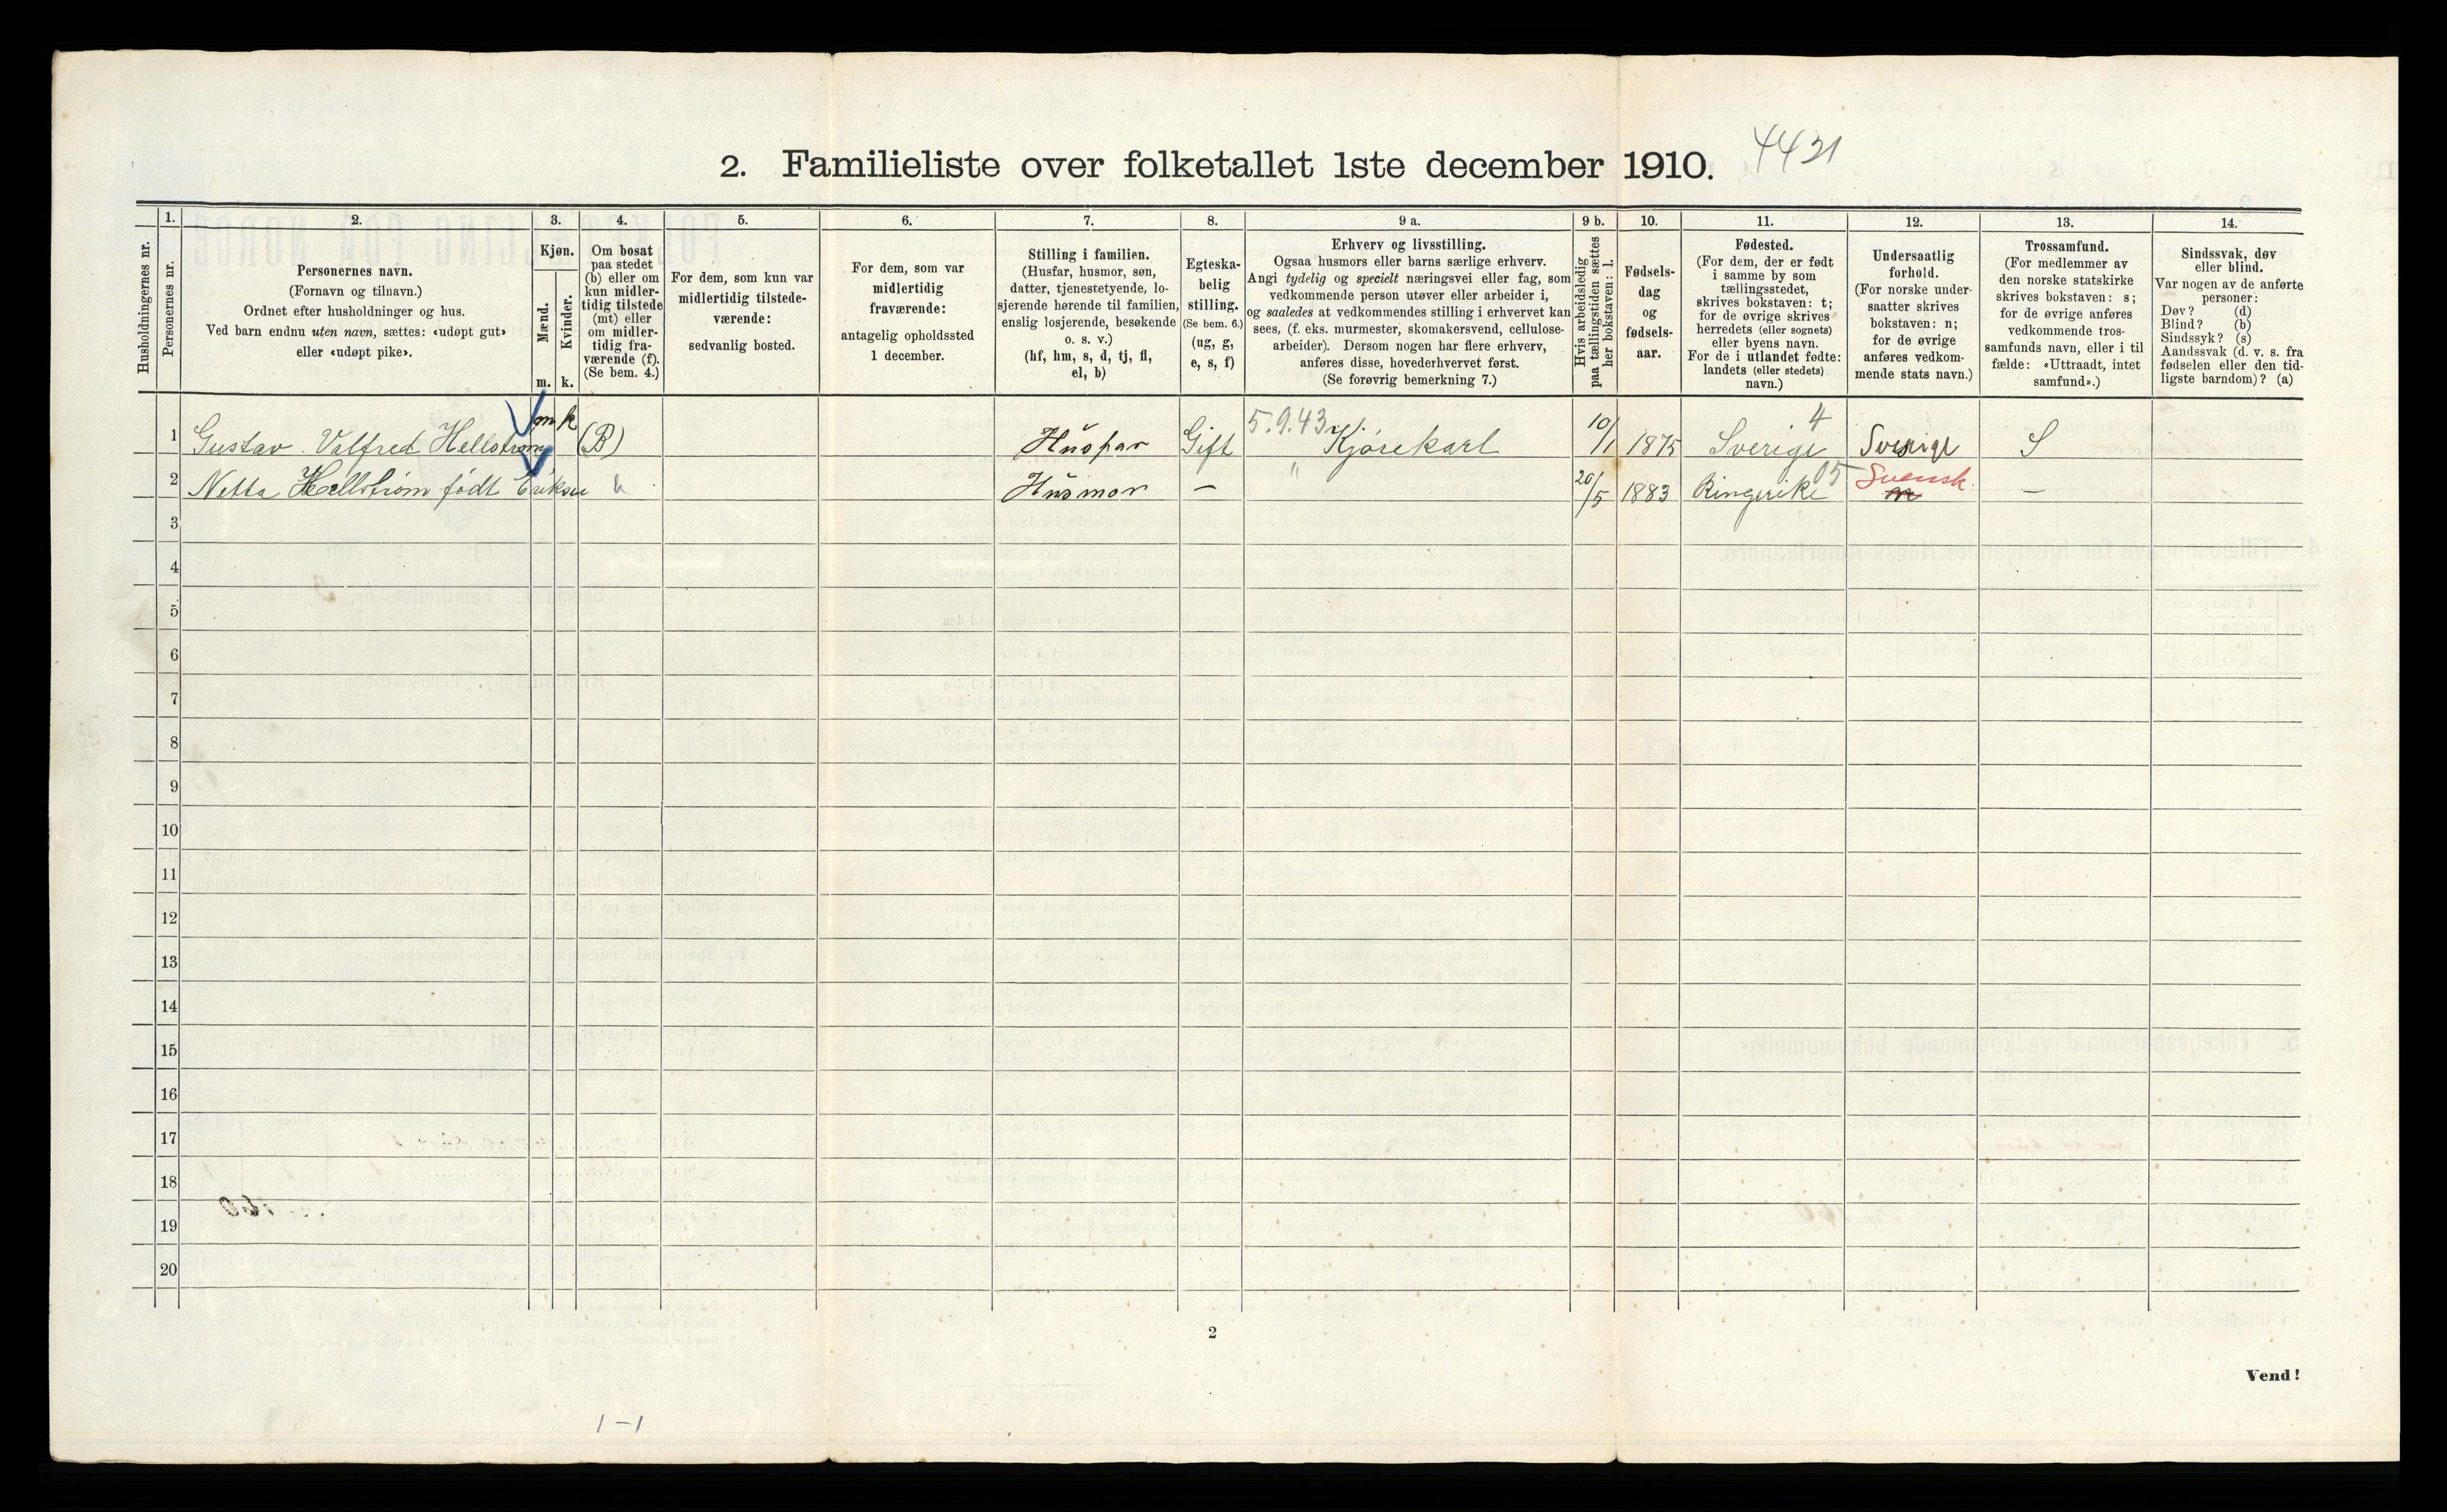 2. Familieliste over folketallet 1ste december 1910. 4421
Husholdningernes nr.
1.
Personernes nr.
2.
Personernes navn.
(Fornavn og tilnavn.)
Ordnet efter husholdninger og hus.
Ved barn endnu uten navn, sættes: «udøpt gut»
eller «udøpt pike».
3.
Kjøn.
Mænd.
Kvinder.
m. k.
4.
Om bosat
paa stedet
(b) eller om
kun midler-
tidig tilstede
(mt) eller
om midler-
tidig fra-
værende (f).
(Se bem. 4.)
5.
For dem, som kun var
midlertidig tilstede-
værende:
sedvanlig bosted.
6.
For dem, som var
midlertidig
fraværende:
antagelig opholdssted
1 december.
7.
Stilling i familien.
(Husfar, husmor, søn,
datter, tjenestetyende, lo-
sjerende hørende til familien,
enslig losjerende, besøkende
o. s. v.)
(hf, hm, s, d, tj, fl,
el, b)
8.
Egteska-
belig
stilling.
(Se bem. 6.)
(ug, g,
e, s, f)
9 a.
Erhverv og livsstilling.
Ogsaa husmors eller barns særlige erhverv.
Angi tydelig og specielt næringsvei eller fag, som
vedkommende person utøver eller arbeider i,
og saaledes at vedkommendes stilling i erhvervet kan
sees, (f. eks. murmester, skomakersvend, cellulose-
arbeider). Dersom nogen har flere erhverv,
anføres disse, hovederhvervet først.
(Se forøvrig bemerkning 7.)
9 b.
Hvis arbeidsledig
paa tællingstiden sættes
her bokstaven: l.
10.
Fødsels-
dag
og
fødsels-
aar.
11.
Fødested.
(For dem, der er født
i samme by som
tællingsstedet,
skrives bokstaven: t;
for de øvrige skrives
herredets (eller sognets)
eller byens navn.
For de i utlandet fødte:
landets (eller stedets)
navn.)
12.
Undersaatlig
forhold.
(For norske under-
saatter skrives
bokstaven: n;
for de øvrige
anføres vedkom-
mende stats navn.)
13.
Trossamfund.
(For medlemmer av
den norske statskirke
skrives bokstaven: s;
for de øvrige anføres
vedkommende tros-
samfunds navn, eller i til
fælde: «Uttraadt, intet
samfund».)
14.
Sindssvak, døv
eller blind.
Var nogen av de anførte
personer:
Døv? (d)
Blind? (b)
Sindssyk? (s)
Aandssvak (d. v. s. fra
fødselen eller den tid-
ligste barndom)? (a)
1 Gustav Valfred Hellstrøm m k (B) Husfar Gift 5.9.43 Kjørekarl 10/1 1875 Sverige 4 Sverige S
2 Netta Hellstrøm født Eriksen b Husmor — " 20/5 1883 Ringerike 05 n Svensk —
3
4
5
6
7
8
9
10
11
12
13
14
15
16
17
18
19
20
2
Vend!
1-1